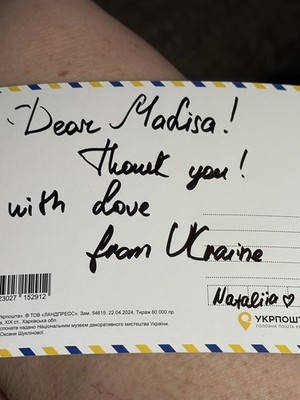 Dear Madisa!
Thank you!
with love
from Ukraine
Nataliia ♡
УКРПОШТ
ГОЛОВНА ПОШТА
23027 152912
крпошта». ® ТОВ «ЛАНДПРЕСС». Зам. 54615. 22.04.2024. Тираж 60 000 пр.
XIX ст., Харківська обл.
надано Національним музеєм декоративного мистецтва України.
Оксани Шуклінової